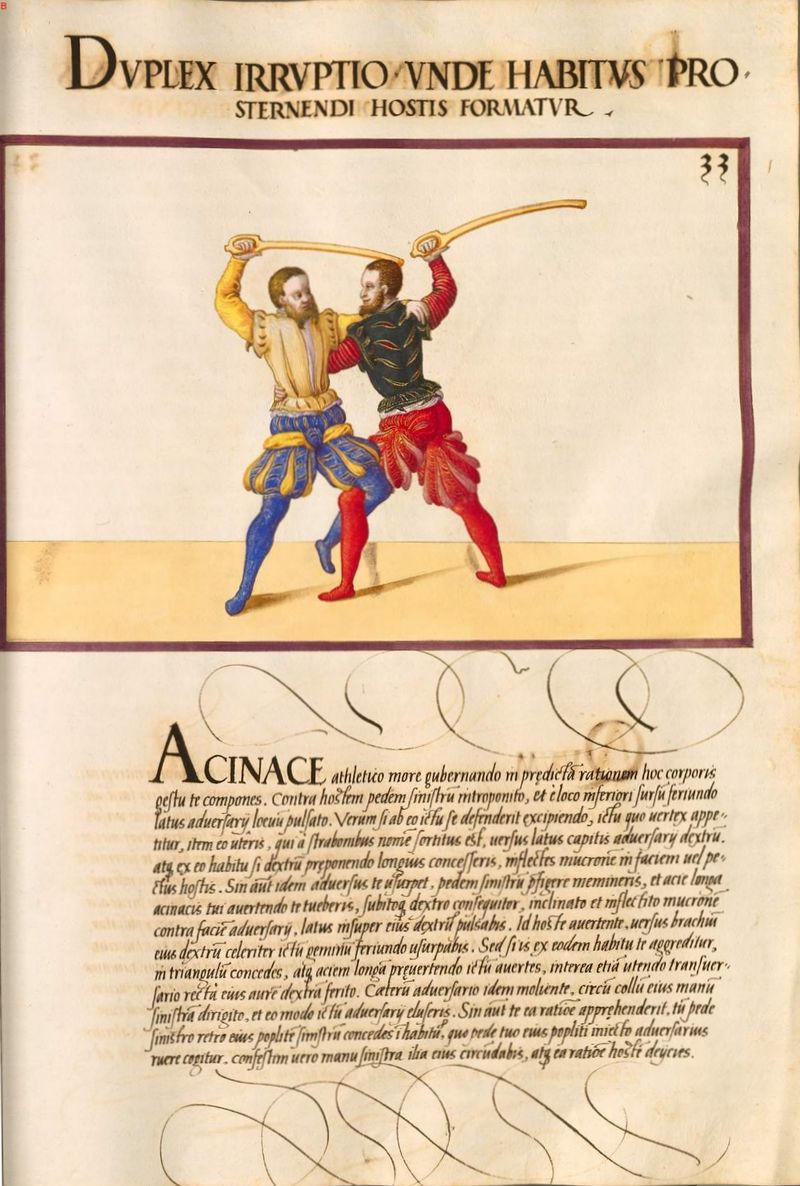 B
DVPLEX IRRVPTIO · VNDE HABITVS PRO-
STERNENDI HOSTIS FORMATVR
33
ACINACE athletico more gubernando in prędictã rationem hoc corporis
gestu te compones. Contra hostem pedem sinistrũ introponito, et è loco inferiori sursũ feriundo
latus adversarij loevũ pulsato. Verum si ab eo ictu se defenderit excipiendo, ictu quo uertex appe-
titur, item eo uteris, qui à strabombus nomẽ sortitus est, uersus latus capitis aduersarij dextrũ.
atq ex eo habitu si dextrũ pręponendo longius concesseris, inflectes mucronẽ in faciem uel pe-
ctus hostis. Sin aũt idem aduersus te usurpet, pedem sinistrũ pfigere memineris, et acie longa
acinacis tui auertendo te tueberis, subitoq dextro consequitor, inclinato et inflectito mucronẽ
contra faciẽ aduersarij, latus insuper eius dextrũ pulsabis. Id hoste auertente, uersus brachiũ
eius dextrũ celeriter ictũ geminũ feriundo usurpabis. Sed si is ex eodem habitu te aggreditur,
in triangulũ concedes, atq aciem longã pręuertendo ictũ auertes, interea etiã utendo transuer-
sario rectà eius aurẽ dextrã ferito. Cæterũ aduersario idem moliente, circũ collũ eius manũ
sinistrã dirigito, et eo modo ictũ aduersarij eluseris. Sin aut te ea ratiõe apprehenderit, tũ pede
sinistro retro eius poplitẽ sinistrũ concedes ĩ habitũ, quo pede tuo eius popliti iniecto aduersarius
ruere cogitur. confestim uero manu sinistra ilia eius circũdabis, atq ea ratiõe hostẽ deijcies.